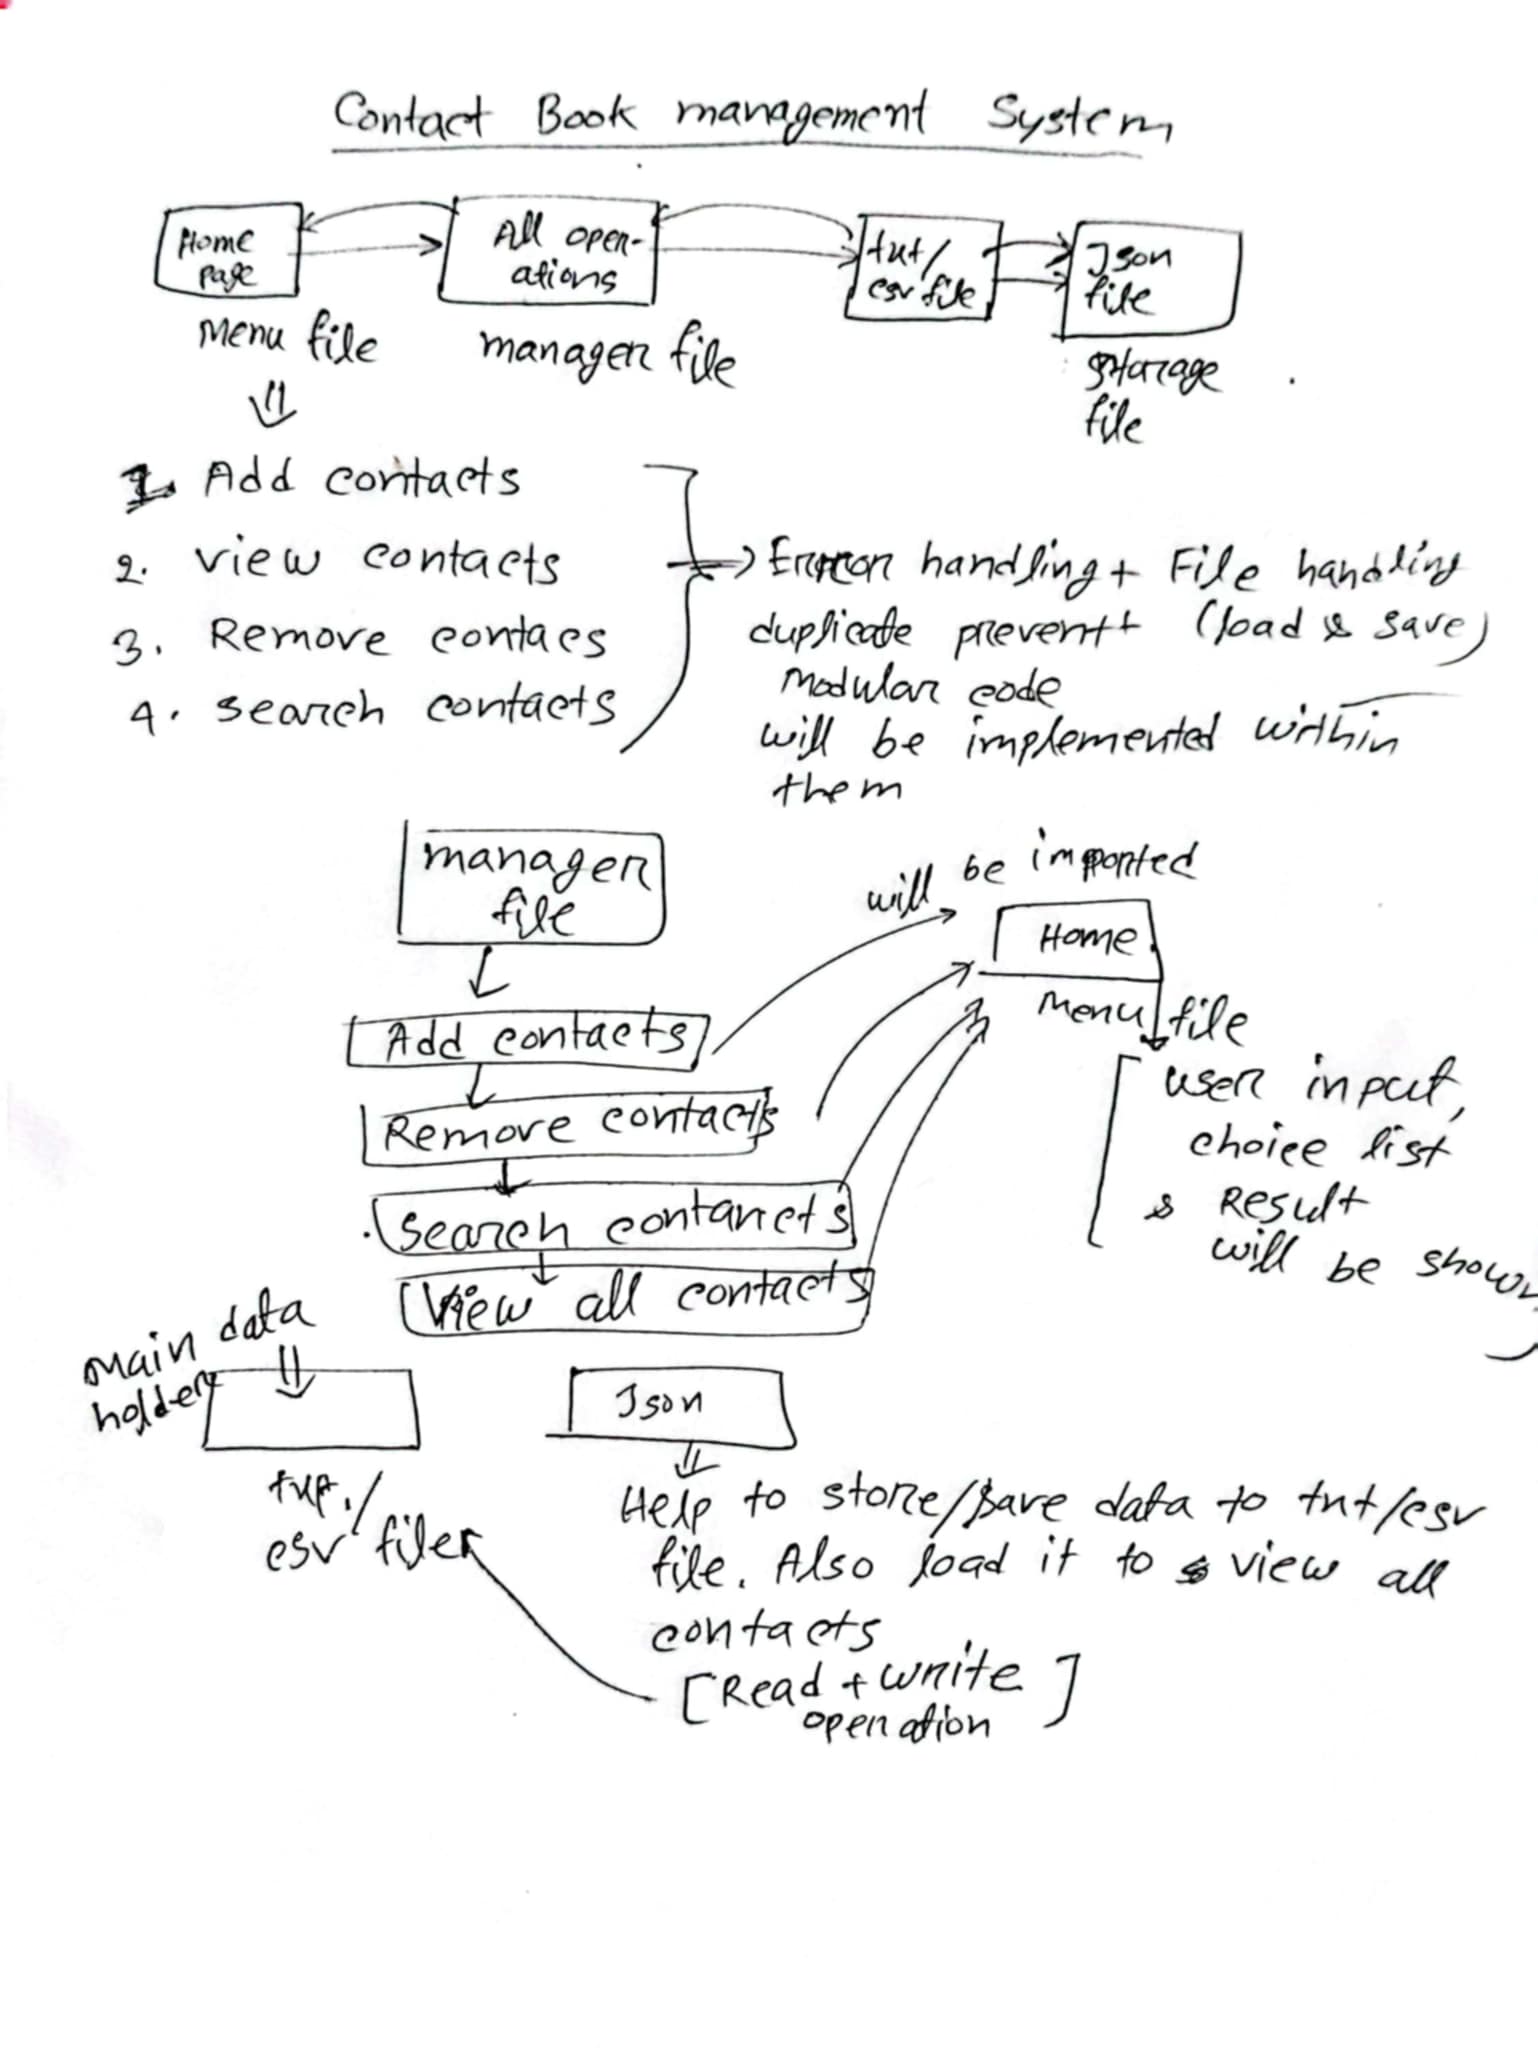 Contact Book management System
Home
page
All oper-
ations
txt/
csv file
Json
file
Menu file
manager file
Storage
file
1. Add contacts
2. view contacts
3. Remove contacs
4. search contacts
Error handling + File handling
duplicate prevent+ (load & save)
Modular code
will be implemented within
them
manager
file
will be imported
Home
Menu file
Add contacts
Remove contacts
Search contancts
View all contacts
user input,
choice list
& Result
will be shown
main data
holder
Json
csv file
Help to store/save data to txt/csv
file. Also load it to view all
contacts
[Read + write
operation]